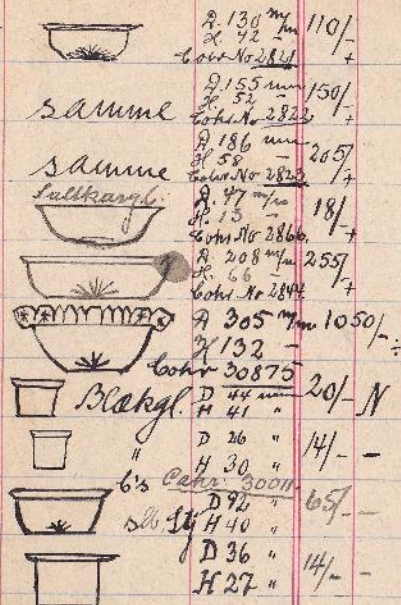 D. 130 m/m 110/-
H. 42 -
Cohr No 2821 +
D. 155 mm 150/-
samme H. 52 -
Cohr No 2822 +
D 186 mm 205/-
samme H 58 -
Cohr No 2823 +
Saltkargl. D. 47 m/m 18/-
H. 13 -
Cohr No 2866. +
D. 208 m/m 255/-
H. 66 -
Cohr No 2844. +
D 305 m/m 1050/-
H 132 - ÷
Cohr 30875
Blækgl. D 44 mm 20/- N
H 41 "
" D 26 " 14/- -
H 30 "
C's Cohr: 30011.
D 92 " 65/- -
H 40 "
D 36 " 14/- -
H 27 "